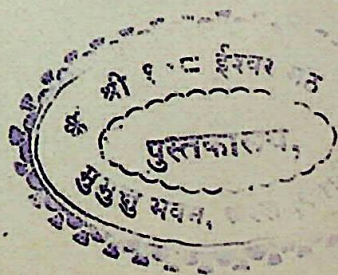 * श्री १०८ ईश्वर मठ
पुस्तकालय,
मुमुक्षु भवन,